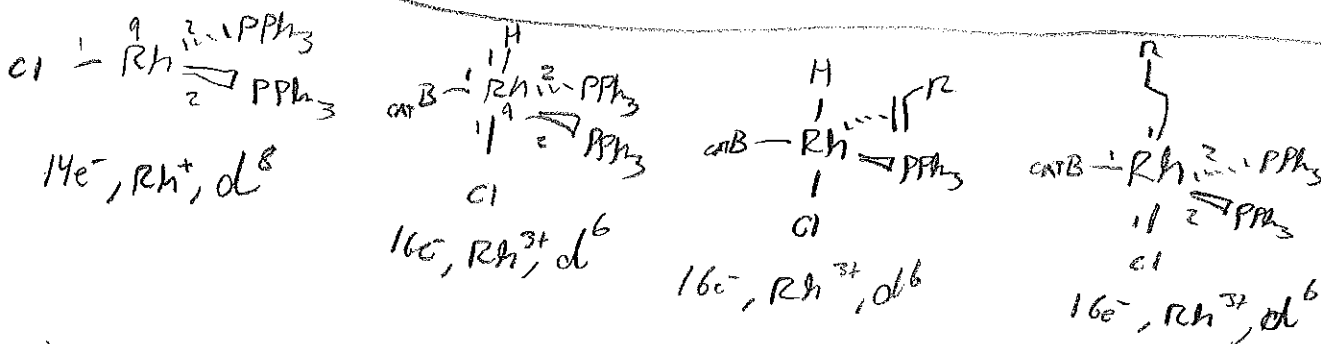 Cl 1 Rh 9 2 PPh3 2 PPh3
14e-, Rh+, d8
H 1 CATB 1 Rh 9 2 PPh3 2 PPh3 1 Cl
16e-, Rh3+, d6
H CATB Rh R PPh3 Cl
16e-, Rh3+, d6
R CATB 1 Rh 1 2 PPh3 2 PPh3 1 Cl
16e-, Rh3+, d6